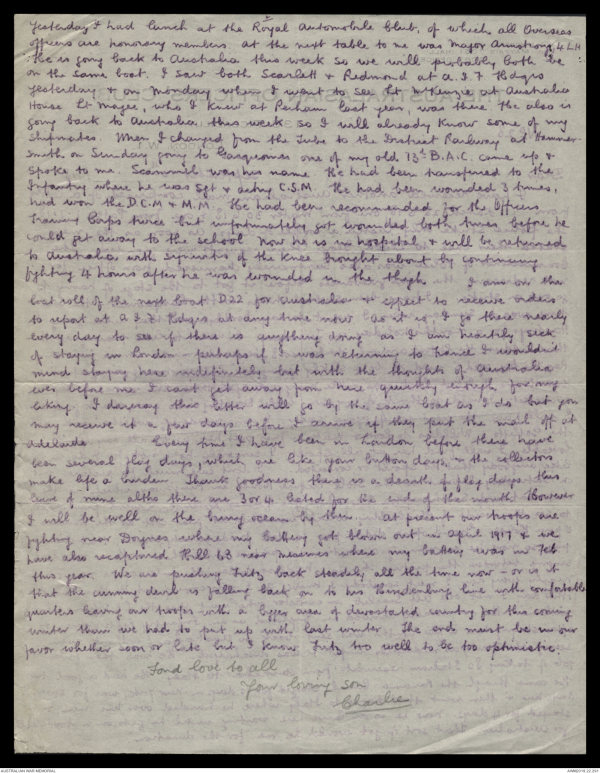 Yesterday I had lunch at the Royal Automobile Club, of which all Overseas
officers are honorary members. At the next table to me was Major Armstrong 4 LH
He is going back to Australia this week so we will probably both be
on the same boat. I saw both Scarlett & Redmond at A.I.F Hdqrs
yesterday & on Monday when I went to see Lt McKenzie at Australia
House Lt Magee, who I knew at Parham last year, was there. He also is
going back to Australia this week so I will already know some of my
shipmates. When I changed from the Tube to the District Railway at Hammer-
smith on Sunday going to one of my old 13th B.A.C. came up &
spoke to me. Scammell was his name. He had been transferred to the
Infantry where he was Sgt & acting C.S.M. He had been wounded 3 times,
had won the D.C.M & M.M. He had been recommended for the Officers
Training Corps twice but unfortunately got wounded both times before he
could get away to the school. Now he is in hospital, & will be returned
to Australia with synovitis of the knee brought about by continuing
fighting 4 hours after he was wounded in the thigh. I am on the
boat roll of the next boat D22 for Australia & expect to receive orders
to report at A.I.F Hdqrs at any time now. As it is I go there nearly
every day to see if there is anything doing as I am heartily sick
of staying in London - perhaps if I was returning to France I wouldn't
mind staying here indefinitely but with the thoughts of Australia
ever before me I cant get away from here quickly enough for my
liking. I daresay this letter will go by the same boat as I do but you
may receive it a few days before I arrive if they put the mail off at
Adelaide. Every time I have been in London before there have
been several flag days, which are like your button days, & the collectors
make life a burden. Thank goodness there is a dearth of flag days this
leave of mine altho there are 3 or 4 listed for the end of the month. However
I will be well on the briny ocean by then. At present our troops are
fighting near Doignes where my battery got blown out in April 1917 & we
have also recaptured Hill 63 near Messines where my battery was in Feb
this year. We are pushing Fritz back steadily all the time now - or is it
that the cunning devil is falling back on to his Hindenburg line with comfortable
quarters leaving our troops with a bigger area of devastated country for this coming
winter than we had to put up with last winter. The ends must be in our
favor whether soon or late but I know Fritz too well to be too optimistic.
Fond love to all
Your loving son
Charlie
AUSTRALIAN WAR MEMORIAL